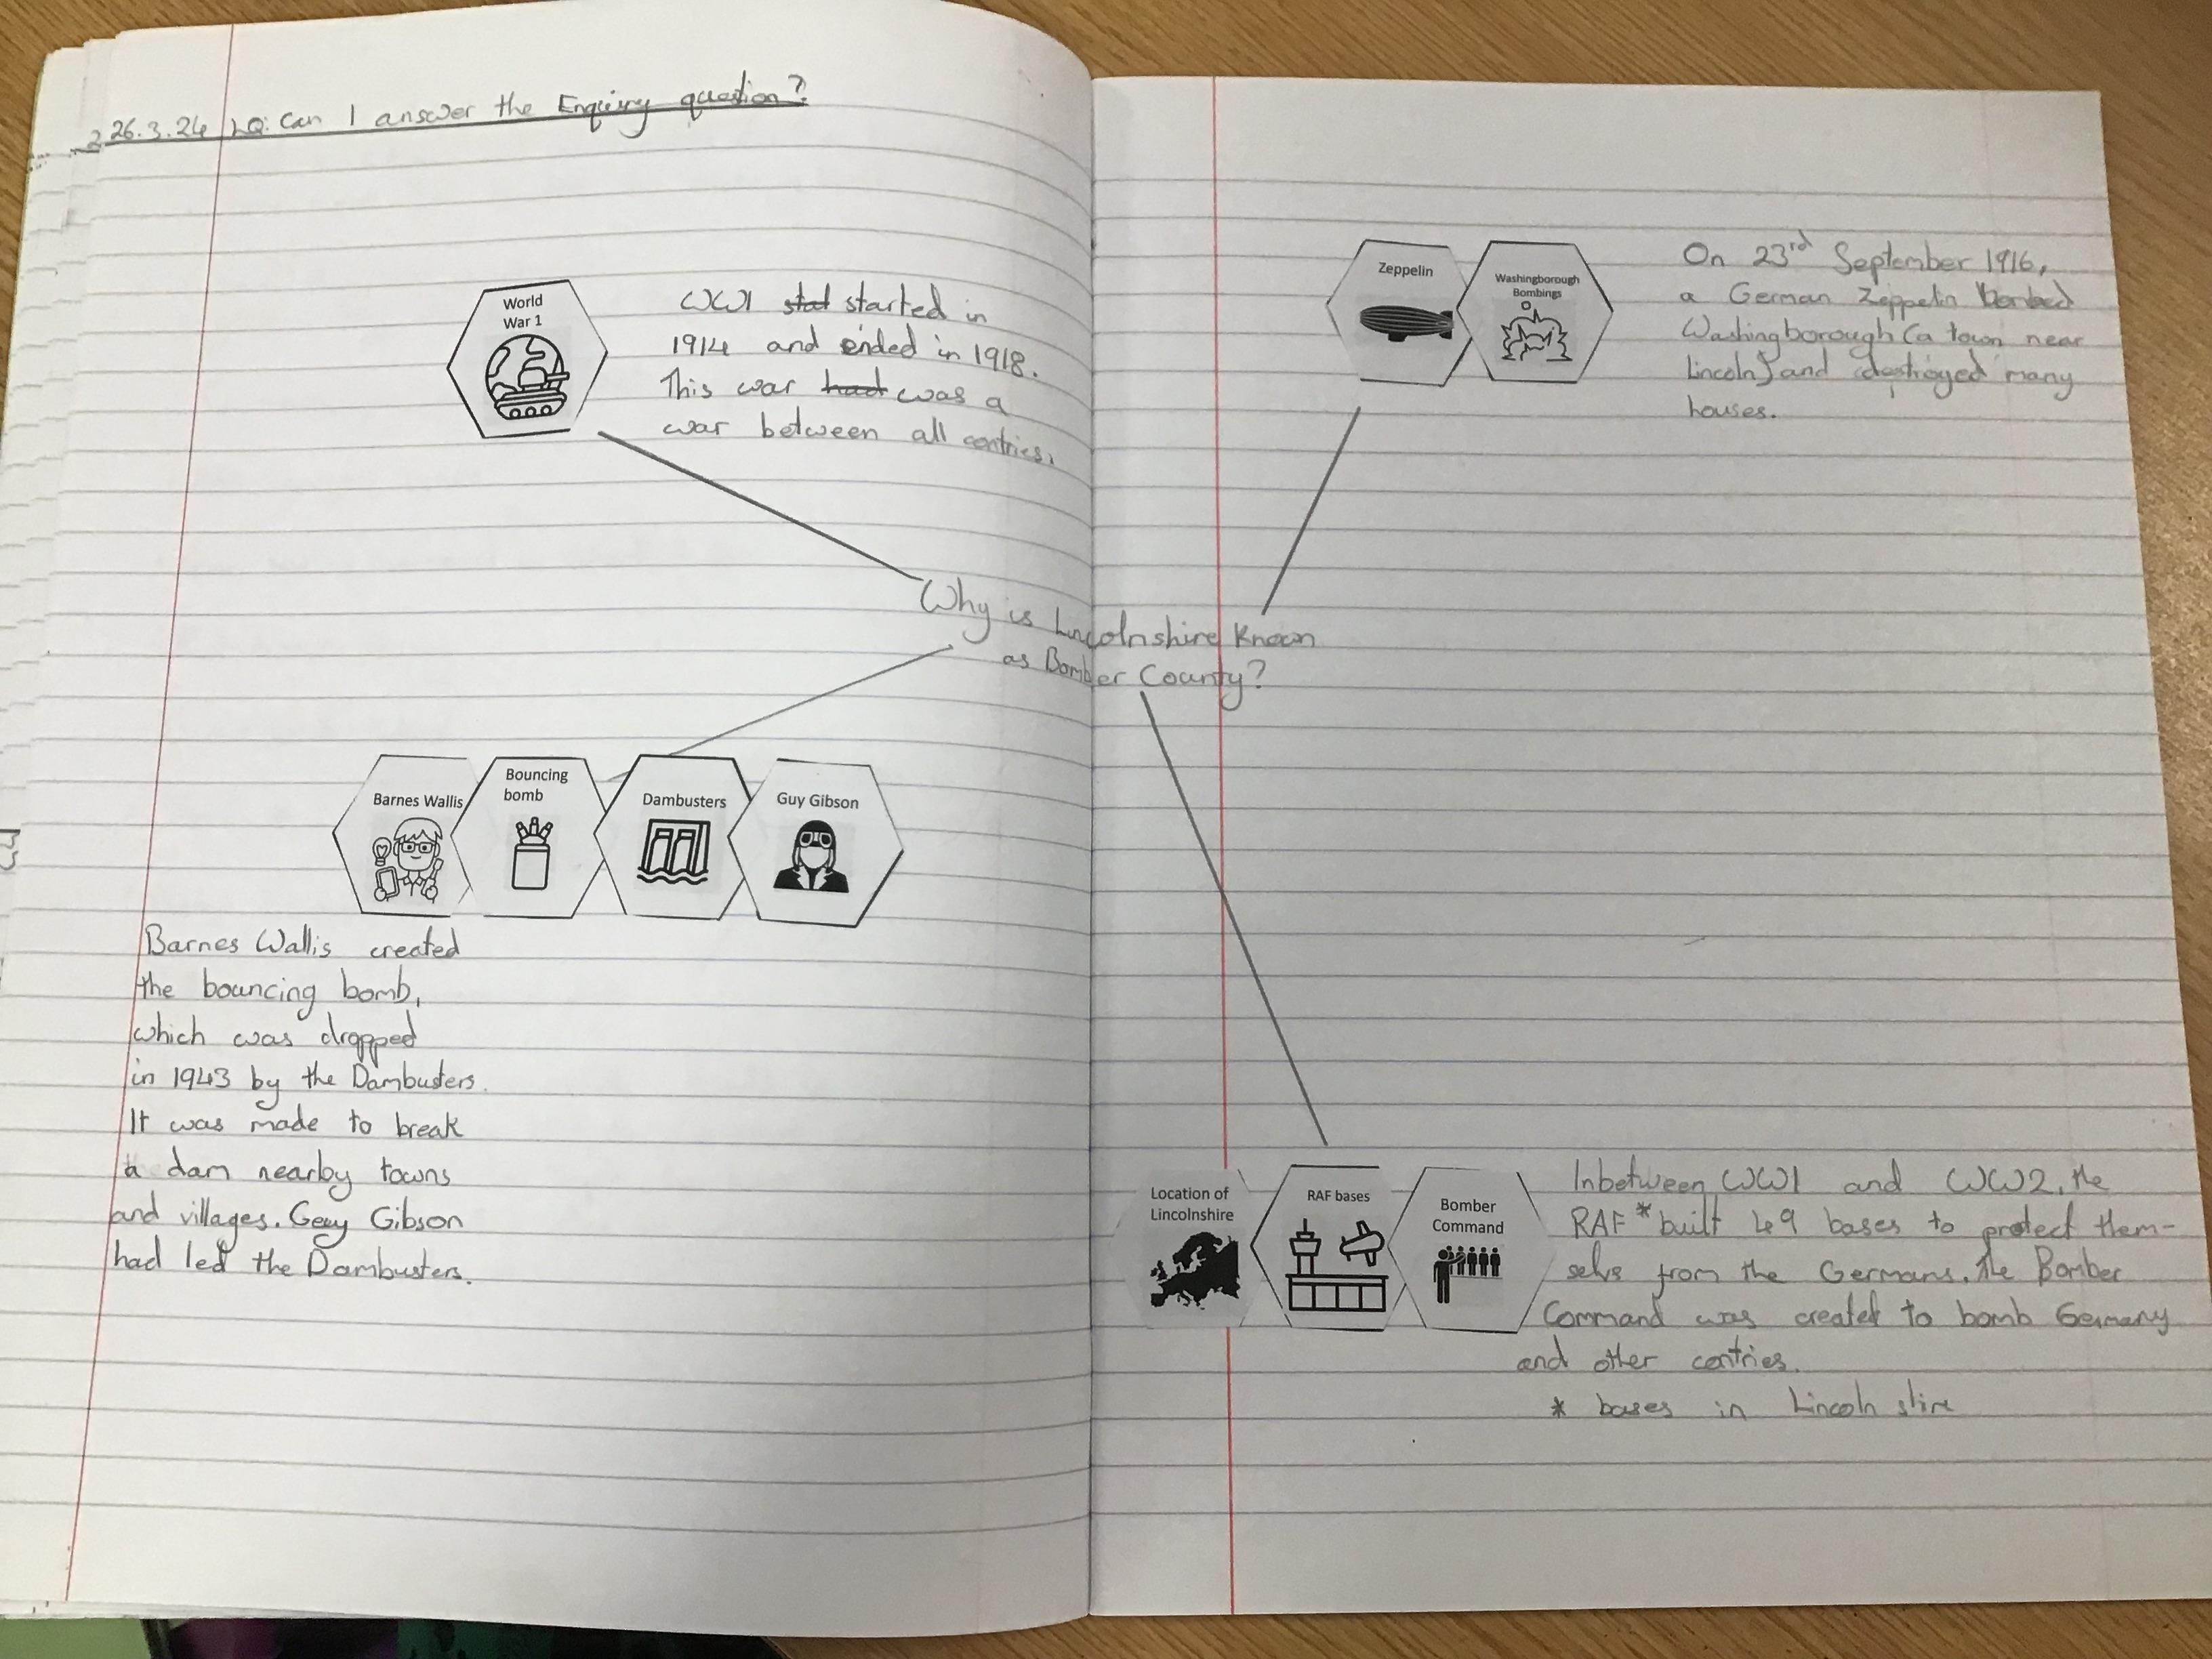 26.3.24 LQ: Can I answer the Enquiry question?
World
War 1
WW1 stat started in
1914 and ended in 1918.
This war had was a
war between all contries.
Zeppelin
Washingborough
Bombings
On 23rd September 1916,
a German Zeppelin bombed
Washingborough (a town near
Lincoln) and destroyed many
houses.
Why is Lincolnshire Known
as Bomber County?
Barnes Wallis
Bouncing
bomb
Dambusters
Guy Gibson
Barnes Wallis created
the bouncing bomb,
which was dropped
in 1943 by the Dambusters.
It was made to break
a dam nearby towns
and villages. Guy Gibson
had led the Dambusters.
Location of
Lincolnshire
RAF bases
Bomber
Command
Inbetween WW1 and WW2, the
RAF * built 49 bases to protect them-
selvs from the Germans. The Bomber
Command was created to bomb Germany
and other contries.
* bases in Lincolnshire